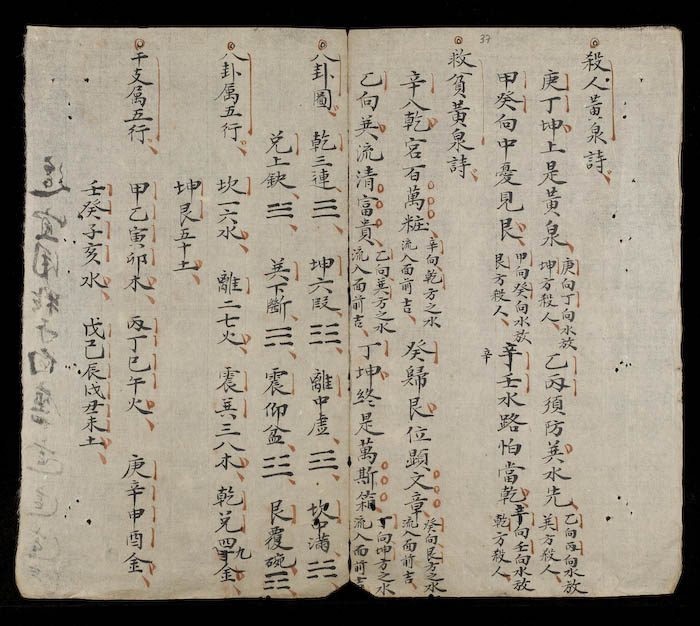 37
殺人黃泉詩
庚丁坤上是黃泉 庚向丁向水放坤方殺人 乙丙須防巽水先 乙向丙向水放巽方殺人
甲癸向中憂見艮 甲向癸向水放艮方殺人 辛壬水路怕當乾 辛向壬向水放乾方殺人
辛
救貧黃泉詩
辛入乾宮百萬粧 辛向乾方之水流入面前吉 癸歸艮位顯文章 癸向艮方之水流入面前吉
乙向巽流清富貴 乙向巽方之水流入面前吉 丁坤終是萬斯箱 丁向坤方之水流入面前吉
八卦圖 乾三連☰ 坤六段☷ 離中虛☲ 坎中滿☵
兌上缺☱ 巽下斷☴ 震仰盆☳ 艮覆碗☶
八卦属五行 坎一六水 離二七火 震巽三八木 乾兌四九金
坤艮五十土
干支属五行 甲乙寅卯木 丙丁巳午火 庚辛申酉金
壬癸子亥水 戊己辰戌丑未土